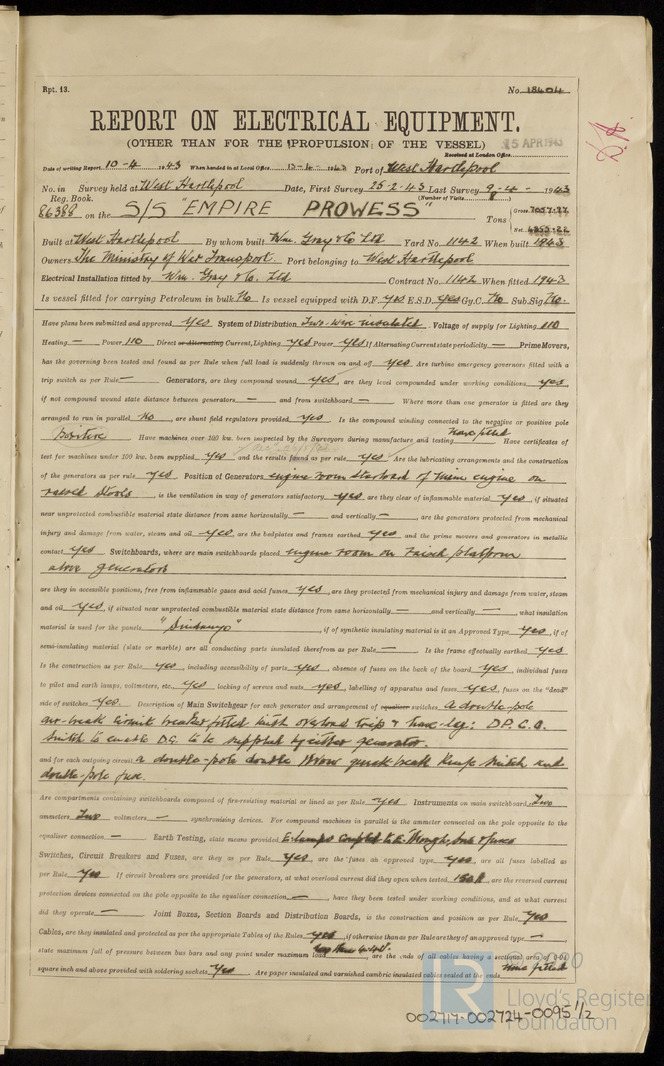 Rpt. 13.
No. 18404
REPORT ON ELECTRICAL EQUIPMENT.
(OTHER THAN FOR THE PROPULSION OF THE VESSEL)
15 APR 1943
Received at London Office
Date of writing Report 10-4-1943 When handed in at Local Office 1943 Port of West Hartlepool
No. in Survey held at West Hartlepool Date, First Survey 25-2-43 Last Survey 9-4-1943
Reg. Book. (Number of Visits 8)
86388 on the S/S "EMPIRE PROWESS" Tons Gross 7057.27
Net 4855.22
Built at West Hartlepool By whom built Wm. Gray & Co Ltd Yard No. 1142 When built 1943
Owners The Ministry of War Transport Port belonging to West Hartlepool
Electrical Installation fitted by Wm. Gray & Co. Ltd Contract No. 1142 When fitted 1943
Is vessel fitted for carrying Petroleum in bulk No Is vessel equipped with D.F. Yes E.S.D. Yes Gy.C. No Sub.Sig No.
Have plans been submitted and approved Yes System of Distribution Two-wire insulated Voltage of supply for Lighting 110
Heating — Power 110 Direct or Alternating Current, Lighting Yes Power Yes If Alternating Current state periodicity — Prime Movers,
has the governing been tested and found as per Rule when full load is suddenly thrown on and off Yes Are turbine emergency governors fitted with a
trip switch as per Rule — Generators, are they compound wound Yes, are they level compounded under working conditions Yes,
if not compound wound state distance between generators — and from switchboard — Where more than one generator is fitted are they
arranged to run in parallel No, are shunt field regulators provided Yes Is the compound winding connected to the negative or positive pole
Positive Have machines over 100 kw. been inspected by the Surveyors during manufacture and testing None fitted Have certificates of
test for machines under 100 kw. been supplied Yes and the results found as per rule Yes Are the lubricating arrangements and the construction
of the generators as per rule Yes Position of Generators engine room starboard of main engine on
raised stools, is the ventilation in way of generators satisfactory Yes are they clear of inflammable material Yes, if situated
near unprotected combustible material state distance from same horizontally — and vertically —, are the generators protected from mechanical
injury and damage from water, steam and oil Yes, are the bedplates and frames earthed Yes and the prime movers and generators in metallic
contact Yes Switchboards, where are main switchboards placed engine room on raised platform
above generators
are they in accessible positions, free from inflammable gases and acid fumes Yes, are they protected from mechanical injury and damage from water, steam
and oil Yes, if situated near unprotected combustible material state distance from same horizontally — and vertically —, what insulation
material is used for the panels "Sindanyo", if of synthetic insulating material is it an Approved Type Yes, if of
semi-insulating material (slate or marble) are all conducting parts insulated therefrom as per Rule — Is the frame effectually earthed Yes
Is the construction as per Rule Yes, including accessibility of parts Yes, absence of fuses on the back of the board Yes, individual fuses
to pilot and earth lamps, voltmeters, etc. Yes locking of screws and nuts Yes, labelling of apparatus and fuses Yes, fuses on the "dead"
side of switches Yes Description of Main Switchgear for each generator and arrangement of equaliser switches A double-pole
air-break circuit breaker fitted with overload trip & time-lag: D.P.C.O.
Switch to enable D.G. to be supplied by either generator.
and for each outgoing circuit a double-pole double throw quick break knife switch and
double-pole fuse.
Are compartments containing switchboards composed of fire-resisting material or lined as per Rule Yes Instruments on main switchboard Two
ammeters Two voltmeters — synchronising devices. For compound machines in parallel is the ammeter connected on the pole opposite to the
equaliser connection — Earth Testing, state means provided E. lamps coupled to E. through sws & fuses
Switches, Circuit Breakers and Fuses, are they as per Rule Yes, are the fuses an approved type Yes, are all fuses labelled as
per Rule Yes If circuit breakers are provided for the generators, at what overload current did they open when tested, are the reversed current
protection devices connected on the pole opposite to the equaliser connection —, have they been tested under working conditions, and at what current
did they operate — Joint Boxes, Section Boards and Distribution Boards, is the construction and position as per Rule Yes
Cables, are they insulated and protected as per the appropriate Tables of the Rules Yes, if otherwise than as per Rule are they of an approved type —,
state maximum fall of pressure between bus bars and any point under maximum load less than 4 volt, are the ends of all cables having a sectional area of 0.01
square inch and above provided with soldering sockets Yes Are paper insulated and varnished cambric insulated cables sealed at the ends None fitted
© 2020
Lloyd's Register
Foundation
002717-002724-0095 1/2